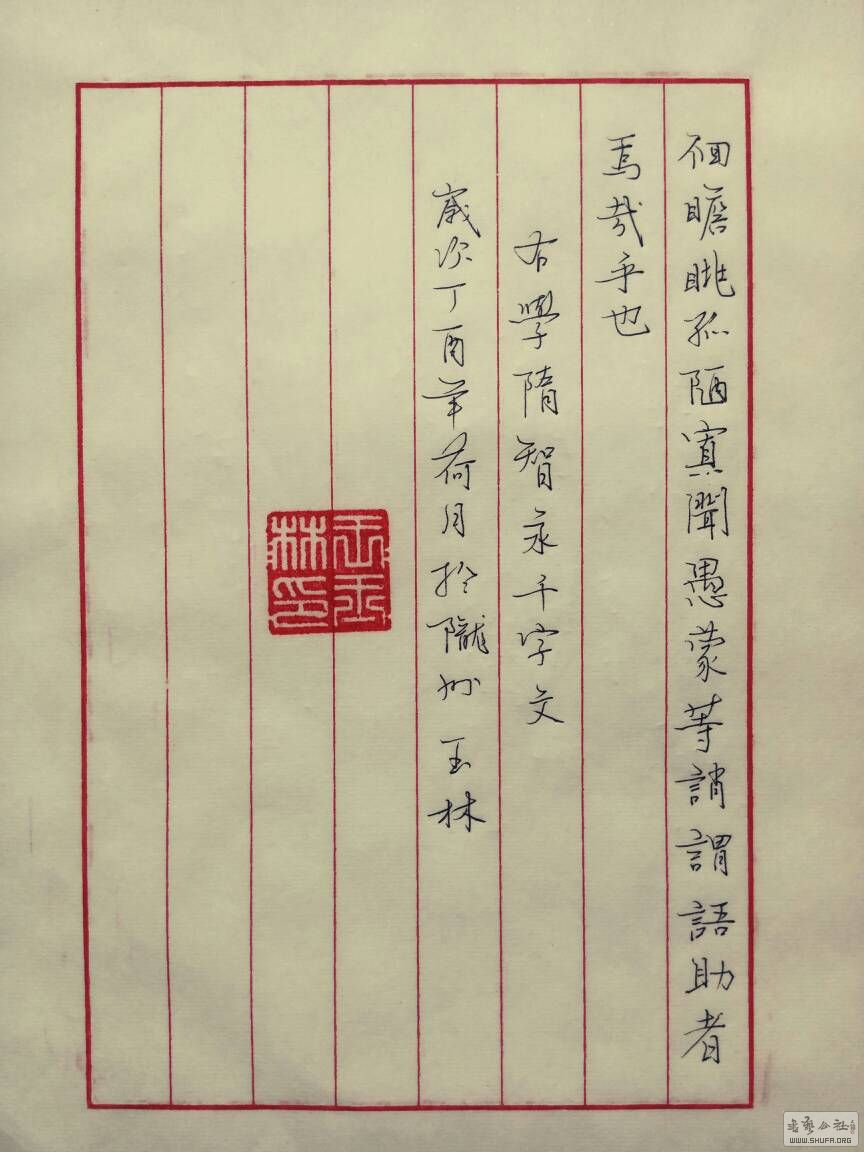 徊瞻眺孤陋寡聞愚蒙等誚謂語助者
焉哉乎也
右學隋智永千字文
歲次丁酉年荷月於隴州玉林
玉林印
書藝公社
WWW.SHUFA.ORG